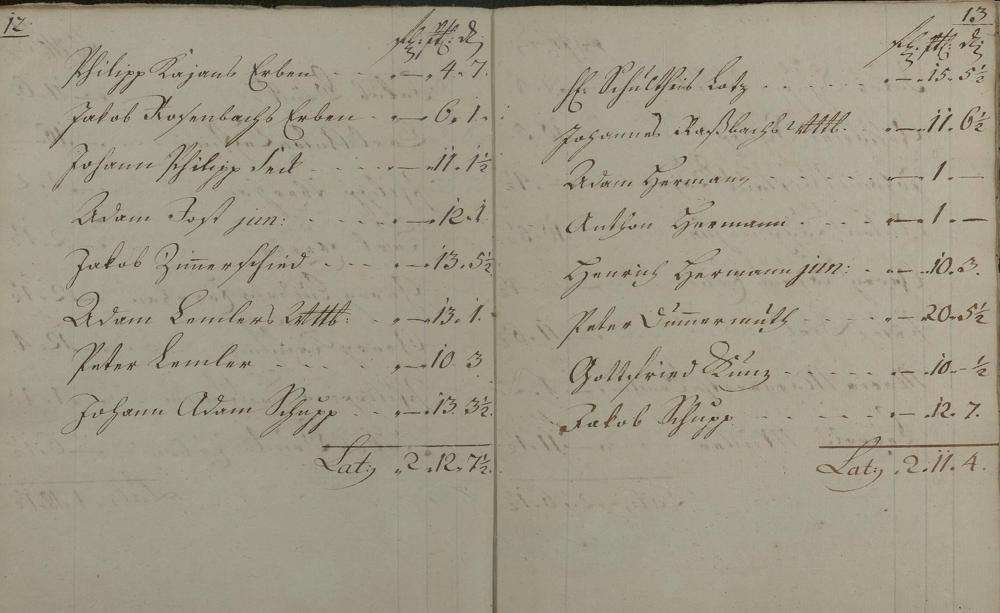 12.
Philipp Kajans Erben - - - . — . 4 . 7.
Jakob Rosenbachs Erben - . — . 6 . 1 .
Johann Philipp - - - . — . 11 . 1½
Adam Jost jun: - - - - . — . 12 . 1
Jakob Zim̄erschied - - - . — . 13 . 5½
Adam Lemlers Wttb: - - . — . 13 . 1.
Peter Lemler - - - - - . — . 10 3
Johann Adam Schupp - - . — . 13. 3½.
Lat: . 2 . 12 . 7½.
13
H: Schultheis Lotz - - - - - . — . 15 . 5½
Johannes Raßbachs Wttb. . — . 11 . 6½
Adam Hermann - - - - - . — . 1 . —
Anthon Hermann - - - - . — . 1 . —
Henrich Hermann jun: - . — . 10 . 3.
Peter Dum̄ermuth - - - . — . 20 . 5½
Gottfried Kunz - - - - . — . 10 - ½
Jakob Schupp - - - - - . — . 12 . 7.
Lat: . 2 . 11 . 4 .